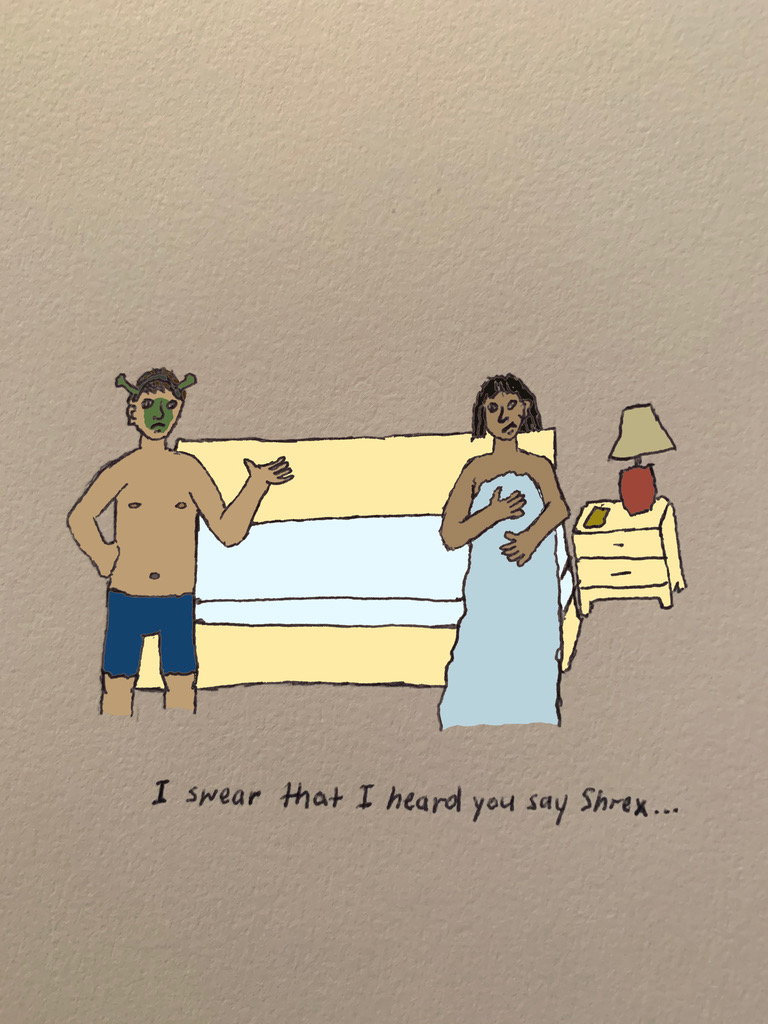 I swear that I heard you say Shrex...